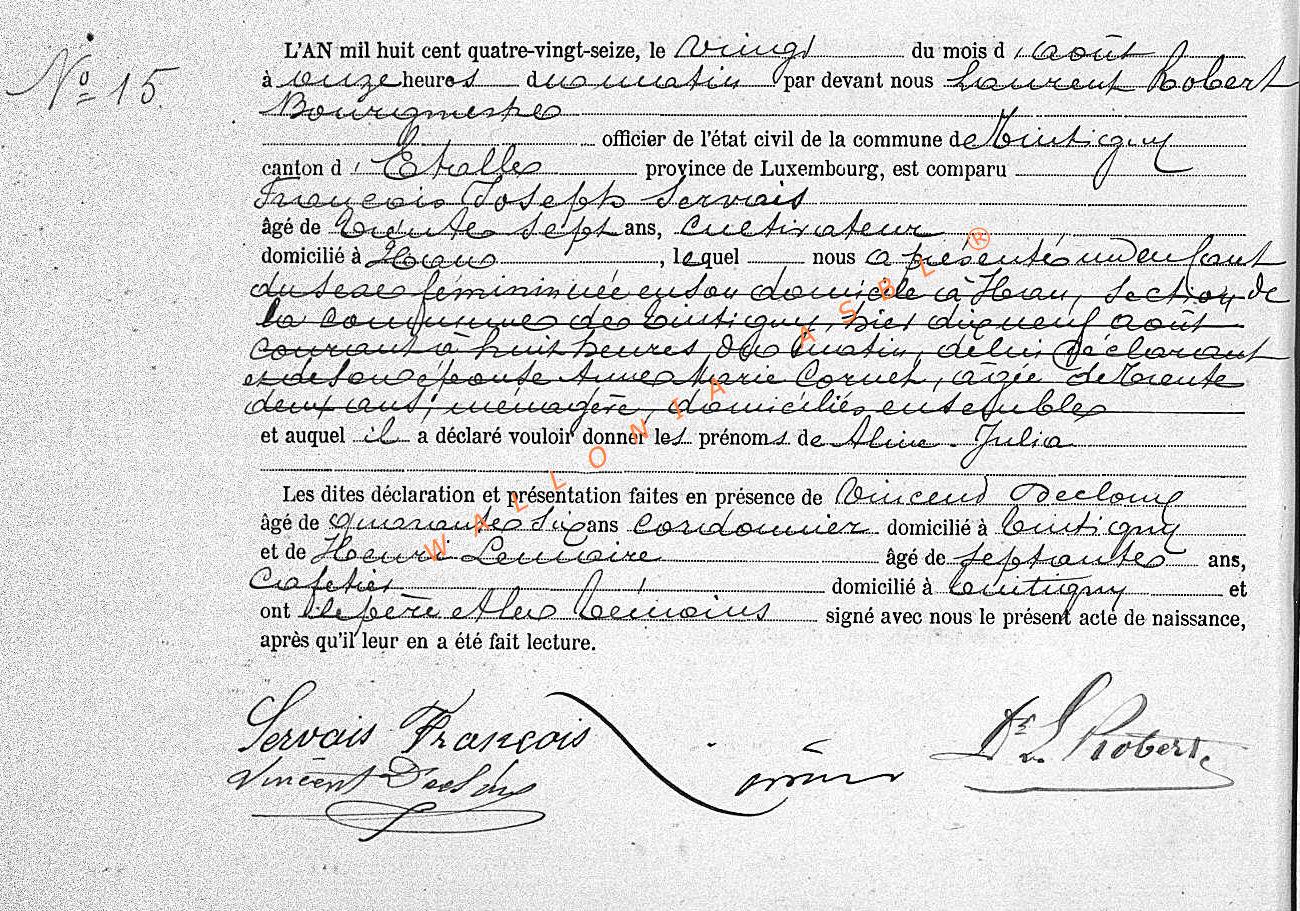 N° 15.
L'AN mil huit cent quatre-vingt-seize, le vingt du mois d'août
à onze heures du matin par devant nous Laurent Robert
Bourgmestre
officier de l'état civil de la commune de Tintigny
canton d'Etalle province de Luxembourg, est comparu
François Joseph Servais
âgé de trente sept ans, cultivateur
domicilié à Han, lequel nous a présenté un enfant
du sexe féminin née en son domicile à Han, section de
la commune de Tintigny, hier dix neuf août
courant à huit heures du matin, de lui déclarant
et de son épouse Anne Marie Cornet, agée de trente
deux ans, ménagère, domiciliés ensembles
et auquel il a déclaré vouloir donner les prénoms de Aline Julia
Les dites déclaration et présentation faites en présence de Vincend Declouy
âgé de quarante six ans cordonnier domicilié à Tintigny
et de Henri Lemaire âgé de septante ans,
Cafetier domicilié à Tintigny et
ont le père et les témoins signé avec nous le présent acte de naissance,
après qu'il leur en a été fait lecture.
Servais François
Dr L Robert
Vincent
WALLONIA ASBL ®